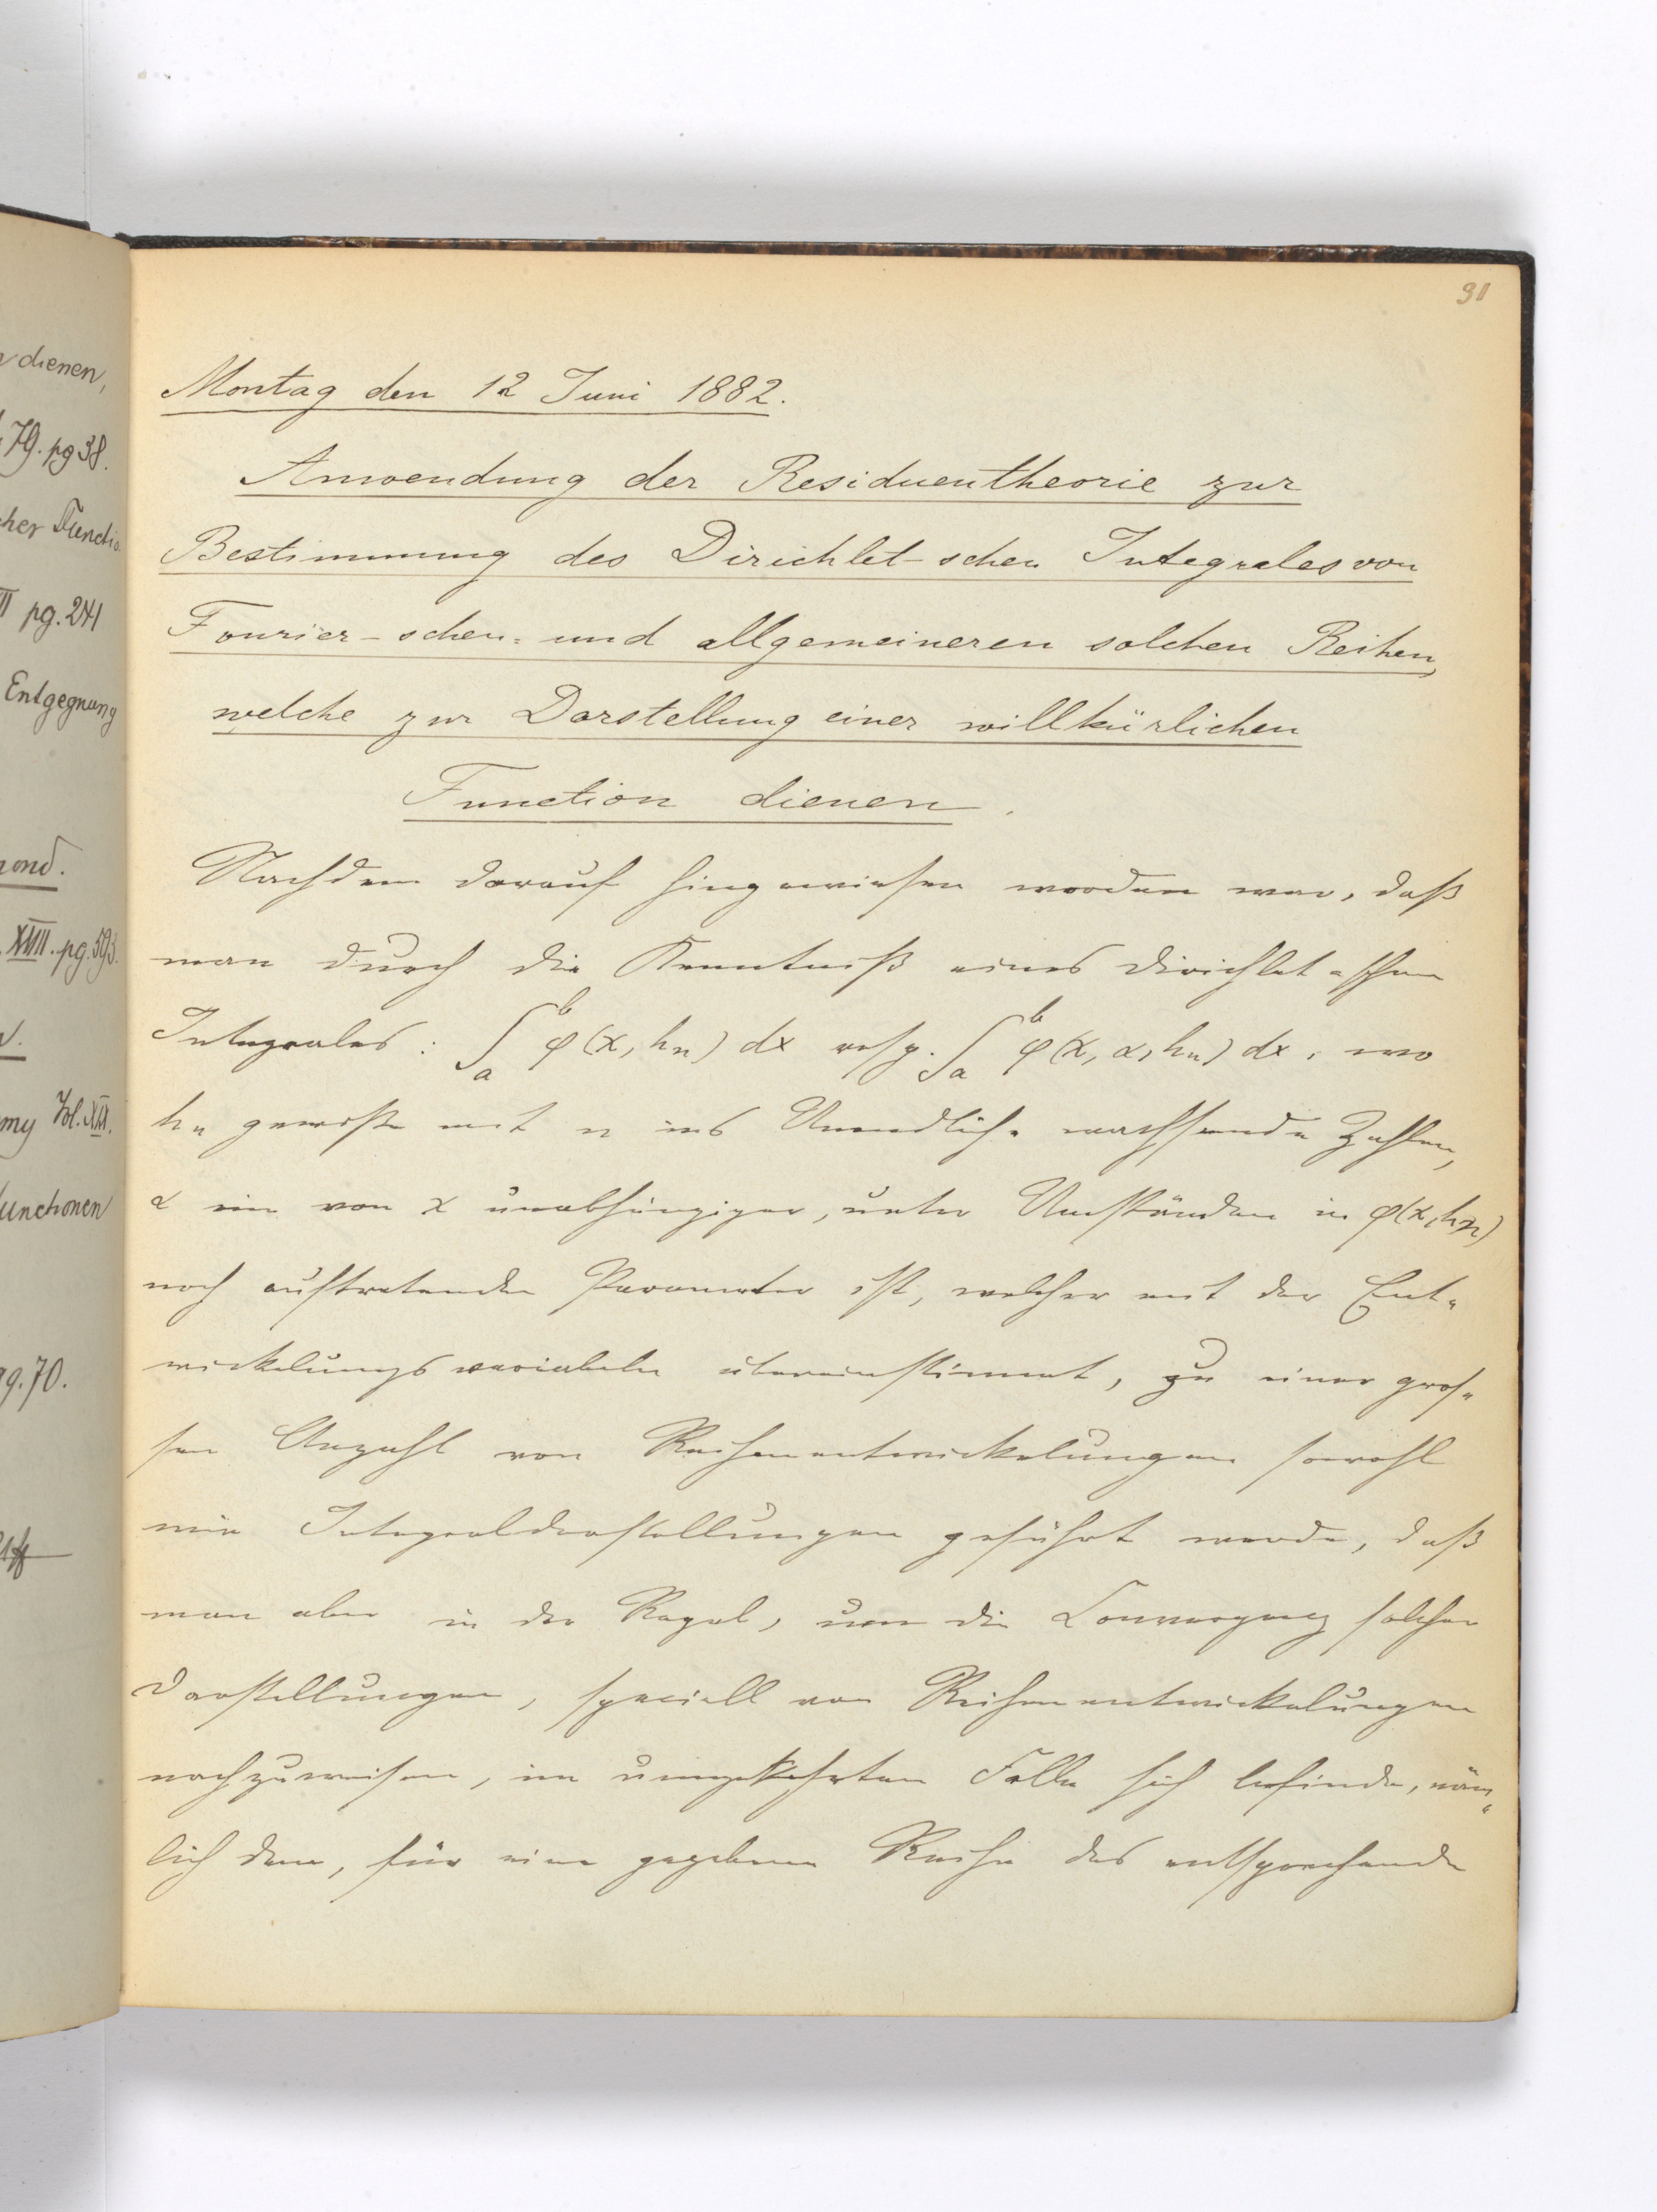 n dienen,
79. pg 38.
cher Functio
II pg. 241
Entgegnung
mond.
XVIII. pg. 593.
my Vol. XIX.
unctionen
pg. 70.
91
Montag den 12 Juni 1882.
Anwendung der Residuentheorie zur
Bestimmung des Dirichlet-schen Integrales von
Fourier-schen- und allgemeineren solchen Reihen,
welche zur Darstellung einer willkürlichen
Function dienen.
Nachdem darauf hingewiesen worden war, daß
man durch die Kenntniß eines Dirichlet-schen
Integrales: ∫_a^b φ(x, h_n) dx resp. ∫_a^b φ(x, α, h_n) dx, wo
h_n gewiße mit n ins Unendliche wachsende Zahlen,
α ein von x unabhängiger, unter Umständen in φ(x, h_n)
noch auftretender Parameter ist, welcher mit der Ent-
wickelungsvariabeln übereinstimmt, zu einer gros-
sen Anzahl von Reihenentwickelungen sowohl
wie Integraldarstellungen geführt werde, daß
man aber in der Regel, um die Convergenz solcher
Darstellungen, speciell von Reihenentwickelungen
nachzuweisen, im umgekehrten Falle sich befinde, näm-
lich dem, für eine gegebene Reihe das entsprechende